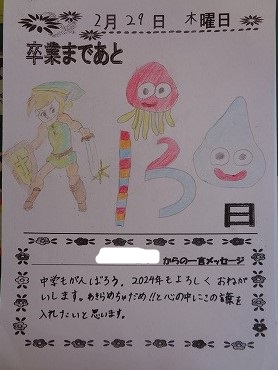 2月29日 木曜日
卒業まであと
13
日
からの一言メッセージ
中学もがんばろう。2024年もよろしくおねが
いします。あきらめちゃだめ!!と心の中にこの言葉を
入れたいと思います。